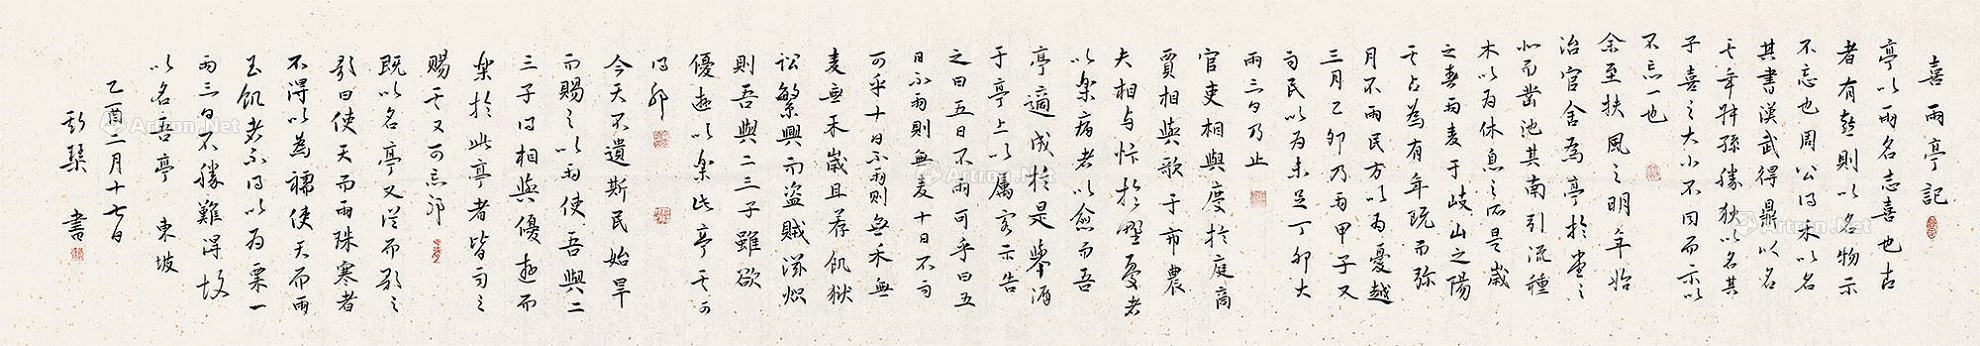 喜雨亭記
亭以雨名志喜也古
者有喜則以名物示
不忘也周公得禾以名
其書漢武得鼎以名
其年叔孫勝狄以名其
子喜之大小不同而示以
不忘一也
余至扶風之明年始
治官舍為亭於堂之
北而鑿池其南引流種
木以為休息之所是歲
之春雨麦于岐山之陽
其占為有年既而弥
月不雨民方以為憂越
三月乙卯乃雨甲子又
雨民以為未足丁卯大
雨三日乃止
官吏相與慶於庭商
賈相與歌于市農
夫相与忭於野憂者
以樂病者以愈而吾
亭適成於是舉酒
于亭上以属客而告
之曰五日不雨可乎曰五
日不雨則無麦十日不雨
可乎十日不雨則無禾無
麦無禾歲且荐飢獄
訟繁興而盜賊滋熾
則吾與二三子雖欲
優遊以樂此亭其可
得耶
今天不遺斯民始旱
而賜之以雨使吾與二
三子得相與優遊而
樂於此亭者皆雨之
賜其又可忘耶
既以名亭又從而歌之
歌曰使天而雨珠寒者
不得以為襦使天而雨
玉飢者不得以為粟一
雨三日不勝難得故
以名吾亭 東坡
乙酉二月十七日
書
Artron.Net
Artron.Net
Artron.Net